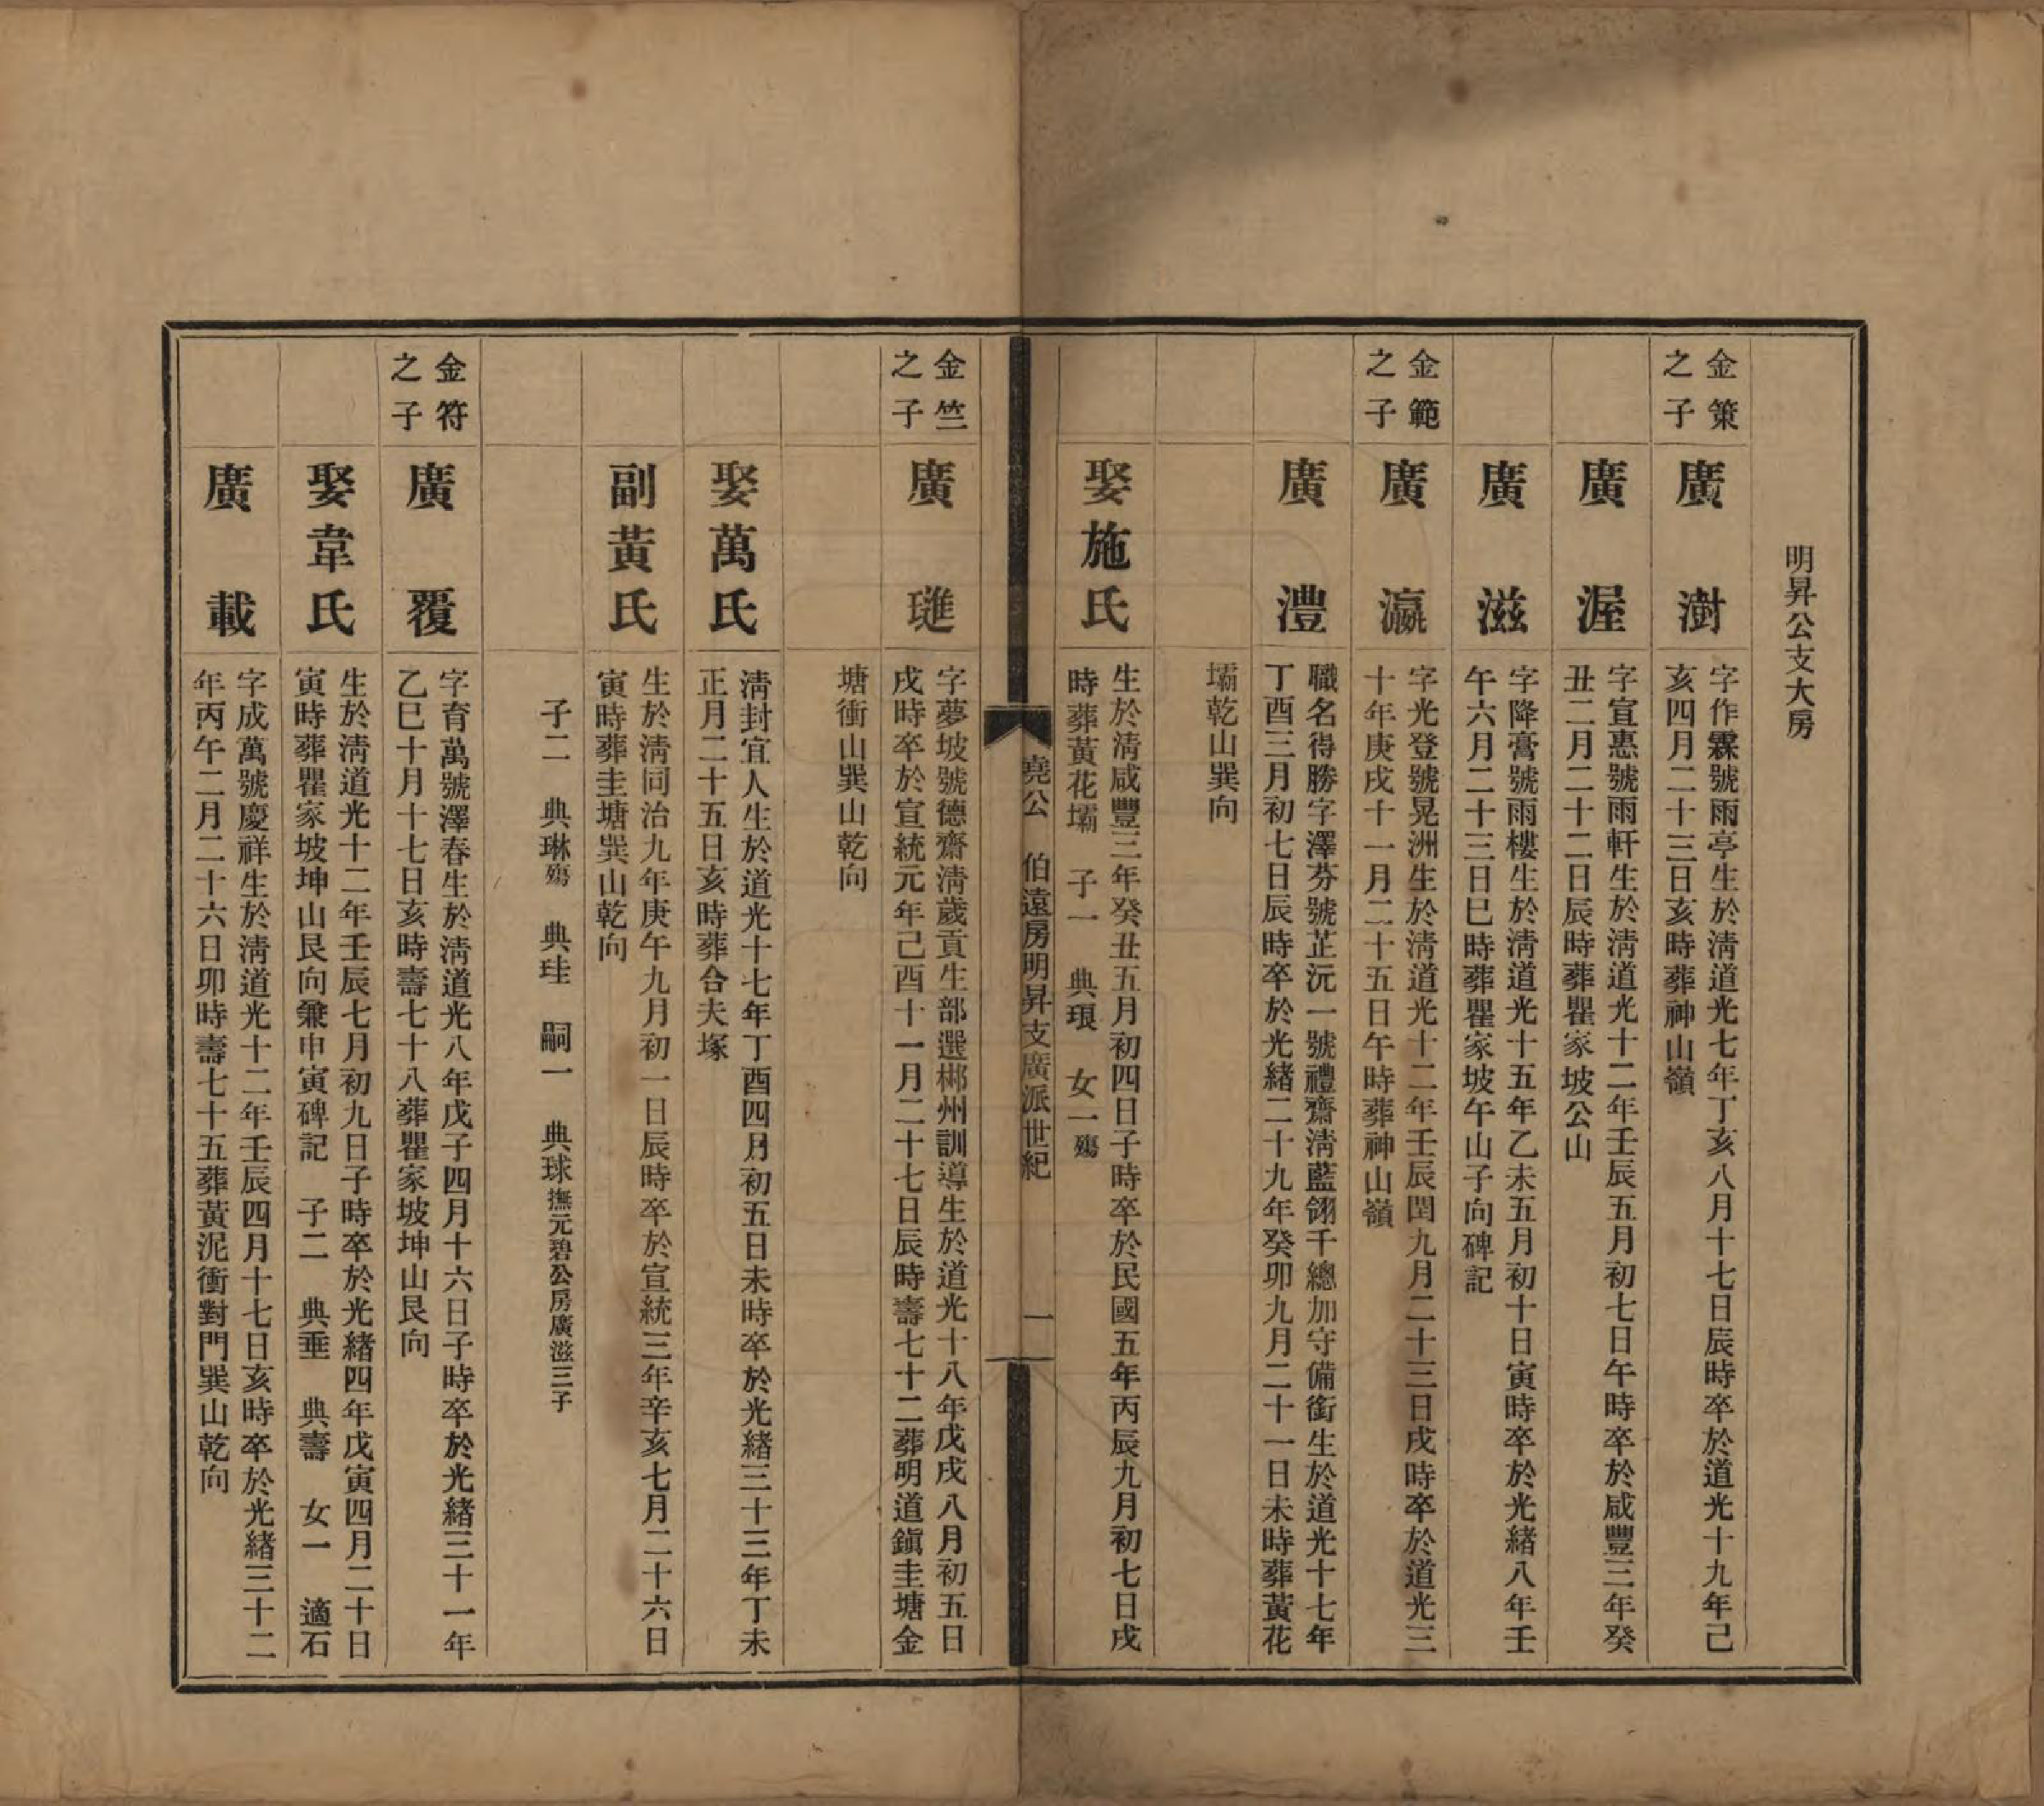 明昇公支大房
金策
之子
廣澍
字作霖號雨亭生於清道光七年丁亥八月十七日辰時卒於道光十九年己
亥四月二十三日亥時葬神山嶺
廣渥
字宣惠號雨軒生於清道光十二年壬辰五月初七日午時卒於咸豐三年癸
丑二月二十二日辰時葬瞿家坡公山
廣滋
字降膏號雨樓生於清道光十五年乙未五月初十日寅時卒於光緒八年壬
午六月二十三日巳時葬瞿家坡午山子向碑記
金範
之子
廣瀛
字光登號晃洲生於清道光十二年壬辰閏九月二十三日戌時卒於道光三
十年庚戌十一月二十五日午時葬神山嶺
廣澧
職名得勝字澤芬號芷沅一號禮齋清藍翎千總加守備銜生於道光十七年
丁酉三月初七日辰時卒於光緒二十九年癸卯九月二十一日未時葬黃花
壩乾山巽向
娶施氏
生於清咸豐三年癸丑五月初四日子時卒於民國五年丙辰九月初七日戌
時葬黃花壩 子一 典珢 女一殤
堯公 伯遠房明昇支廣派世紀 一
金竺
之子
廣璡
字夢坡號德齋清歲貢生部選郴州訓導生於道光十八年戊戌八月初五日
戌時卒於宣統元年己酉十一月二十七日辰時壽七十二葬明道鎮圭塘金
塘衝山巽山乾向
娶萬氏
清封宜人生於道光十七年丁酉四月初五日未時卒於光緒三十三年丁未
正月二十五日亥時葬合夫塚
副黃氏
生於清同治九年庚午九月初一日辰時卒於宣統三年辛亥七月二十六日
寅時葬圭塘巽山乾向
子二 典琳殤 典珪 嗣一 典球撫元碧公房廣滋三子
金符
之子
廣覆
字育萬號澤春生於清道光八年戊子四月十六日子時卒於光緒三十一年
乙巳十月十七日亥時壽七十八葬瞿家坡坤山艮向
娶韋氏
生於清道光十二年壬辰七月初九日子時卒於光緒四年戊寅四月二十日
寅時葬瞿家坡坤山艮向兼申寅碑記 子二 典垂 典壽 女一 適石
廣載
字成萬號慶祥生於清道光十二年壬辰四月十七日亥時卒於光緒三十二
年丙午二月二十六日卯時壽七十五葬黃泥衝對門巽山乾向